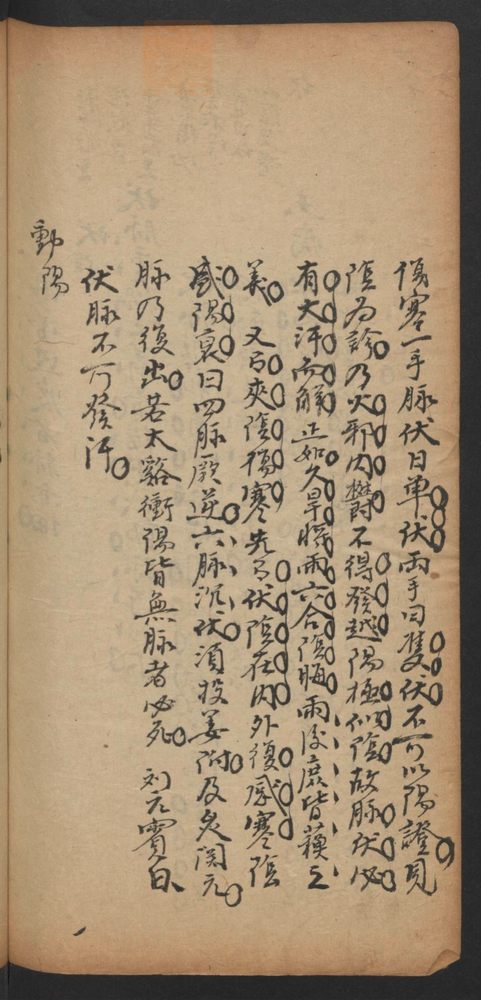 傷寒一手脉伏曰单伏兩手曰隻伏不可以陽證見
陰為診乃火邪内欝不得發越陽極似陰故脉伏必
有大汗而觧正如久旱將雨六合陰晦雨後庶皆蘓之
義又有夾陰傷寒先有伏陰在内外復感寒陰
盛陽衰曰四脉厥逆六脉沉伏須投姜附及灸関元
脉乃復出若太谿衝陽皆無脉者必死 刘元賓曰
伏脉不可發汗
動陽